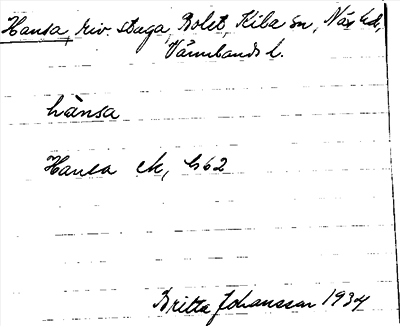 Hansa, riv. stuga, Bolet, Kila sn, Näs hd,
Värmlands l.
hànsa
Hansa ek, G62
Britta Johansson 1934